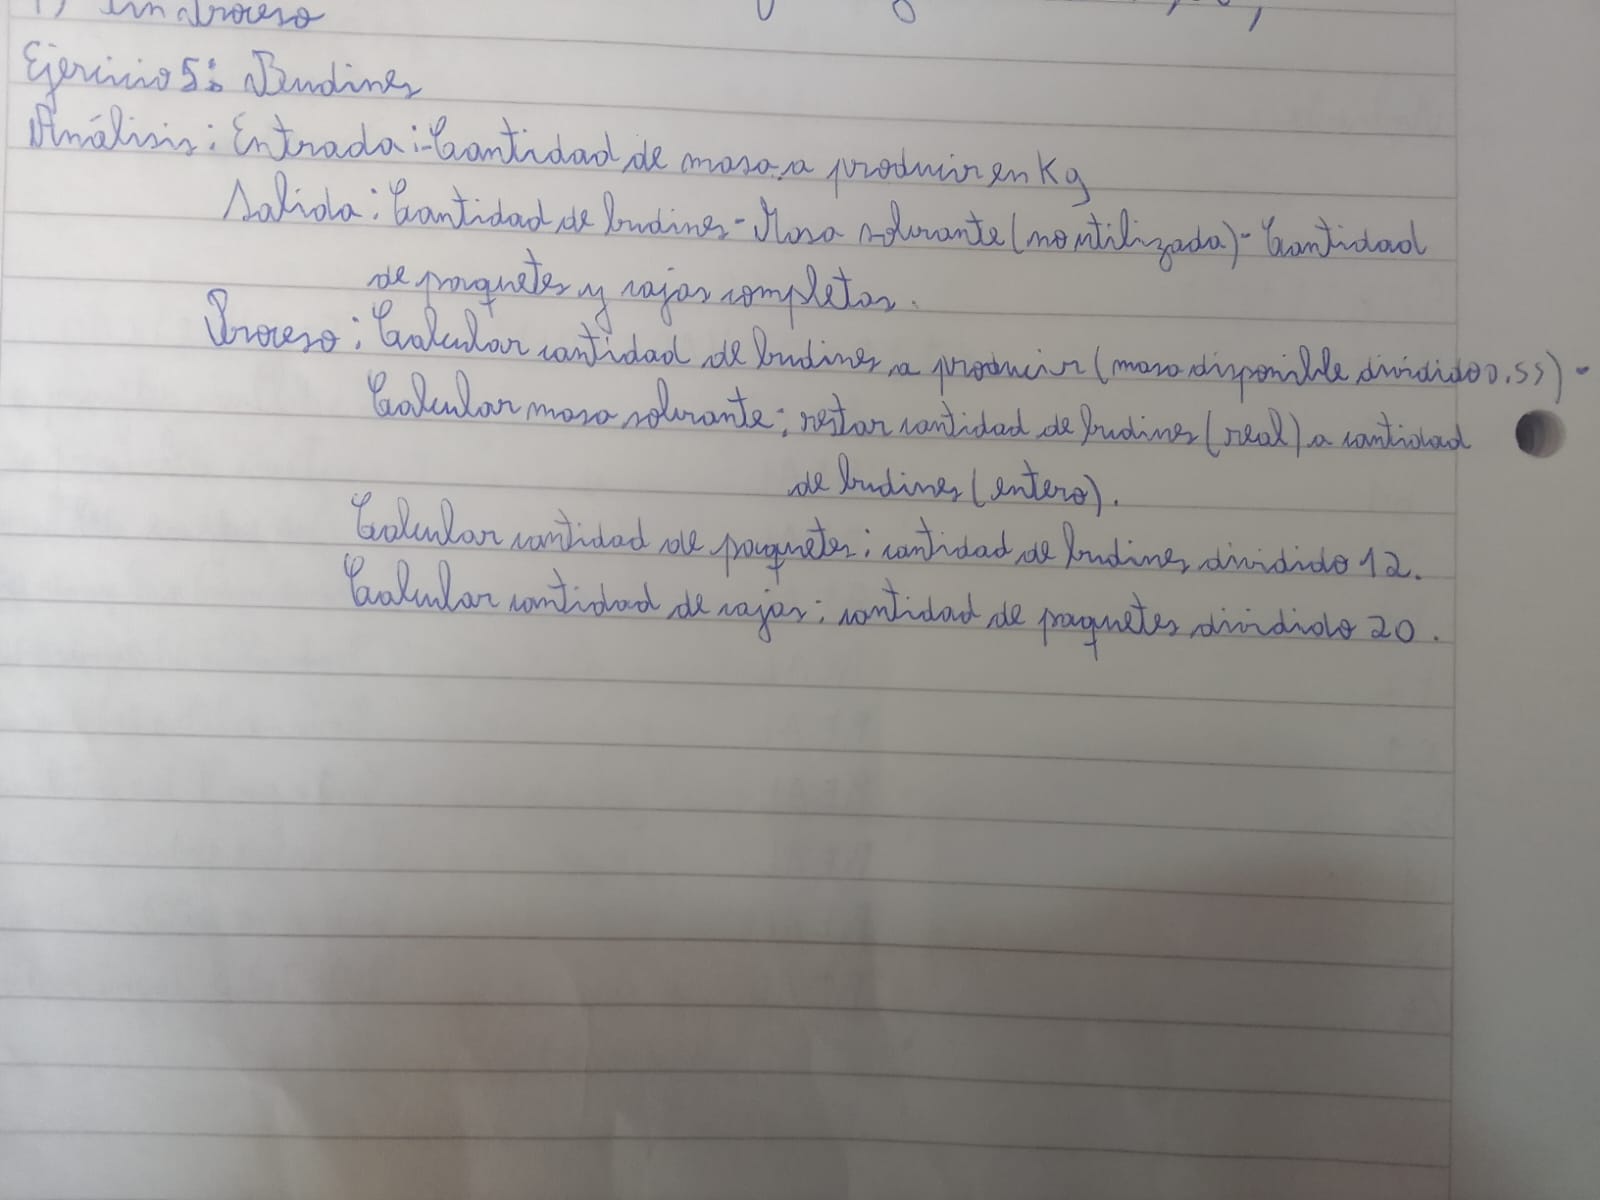 Fin proceso
Ejercicio 5: Budines
Análisis: Entrada: - Cantidad de masa a producir en Kg
Salida: Cantidad de budines - Masa sobrante (no utilizada) - Cantidad
de paquetes y cajas completas.
Proceso: Calcular cantidad de budines a producir (masa disponible dividido 0.55) -
Calcular masa sobrante: restar cantidad de budines (real) a cantidad
de budines (entero).
Calcular cantidad de paquetes: cantidad de budines dividido 12.
Calcular cantidad de cajas: cantidad de paquetes dividido 20.